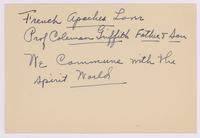 French Apaches Love
Prof Coleman Griffith Father & Son
We Commune with the
Spirit World